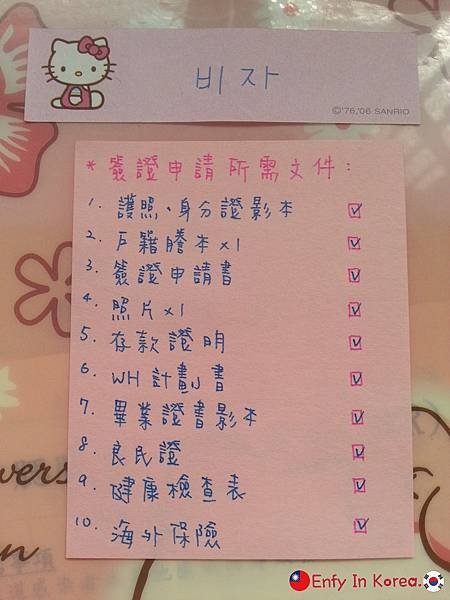 비자
©'76,'06 SANRIO
* 簽證申請所需文件：
1. 護照、身分證影本 ☑
2. 戶籍謄本x1 ☑
3. 簽證申請書 ☑
4. 照片x1 ☑
5. 存款證明 ☑
6. WH計劃書 ☑
7. 畢業證書影本 ☑
8. 良民證 ☑
9. 健康檢查表 ☑
10. 海外保險 ☑
Enfy In Korea.